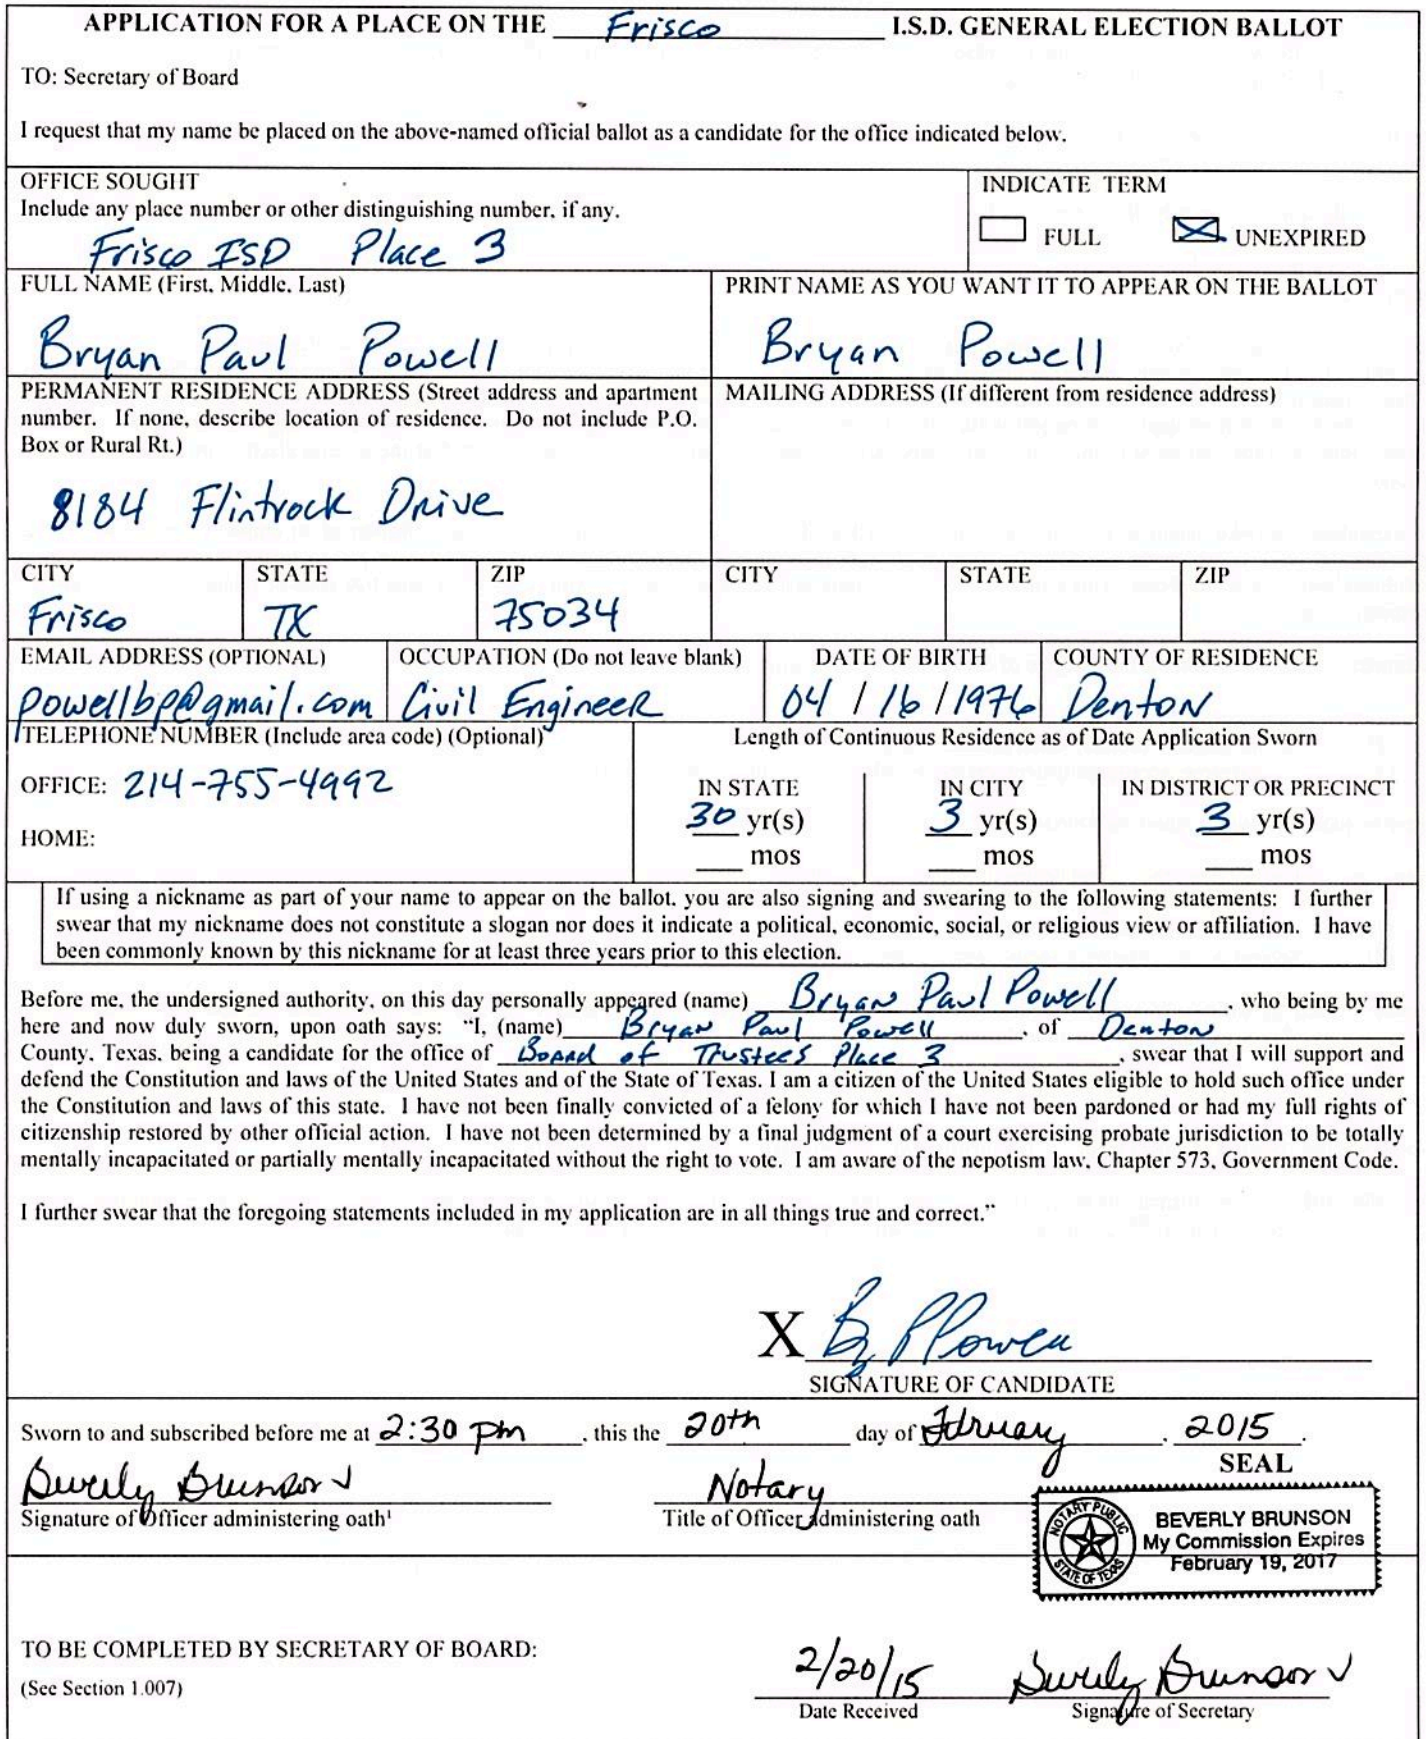 APPLICATION FOR A PLACE ON THE Frisco I.S.D. GENERAL ELECTION BALLOT
TO: Secretary of Board
I request that my name be placed on the above-named official ballot as a candidate for the office indicated below.
OFFICE SOUGHT
Include any place number or other distinguishing number, if any.
Frisco ISD Place 3
INDICATE TERM
FULL UNEXPIRED
FULL NAME (First, Middle, Last)
Bryan Paul Powell
PRINT NAME AS YOU WANT IT TO APPEAR ON THE BALLOT
Bryan Powell
PERMANENT RESIDENCE ADDRESS (Street address and apartment
number. If none, describe location of residence. Do not include P.O.
Box or Rural Rt.)
8184 Flintrock Drive
MAILING ADDRESS (If different from residence address)
CITY STATE ZIP CITY STATE ZIP
Frisco TX 75034
EMAIL ADDRESS (OPTIONAL) OCCUPATION (Do not leave blank) DATE OF BIRTH COUNTY OF RESIDENCE
powellbp@gmail.com Civil Engineer 04 / 16 / 1976 Denton
TELEPHONE NUMBER (Include area code) (Optional)
OFFICE: 214-755-4992
HOME:
Length of Continuous Residence as of Date Application Sworn
IN STATE IN CITY IN DISTRICT OR PRECINCT
30 yr(s) 3 yr(s) 3 yr(s)
mos mos mos
If using a nickname as part of your name to appear on the ballot, you are also signing and swearing to the following statements: I further
swear that my nickname does not constitute a slogan nor does it indicate a political, economic, social, or religious view or affiliation. I have
been commonly known by this nickname for at least three years prior to this election.
Before me, the undersigned authority, on this day personally appeared (name) Bryan Paul Powell, who being by me
here and now duly sworn, upon oath says: "I, (name) Bryan Paul Powell, of Denton
County, Texas, being a candidate for the office of Board of Trustees Place 3, swear that I will support and
defend the Constitution and laws of the United States and of the State of Texas. I am a citizen of the United States eligible to hold such office under
the Constitution and laws of this state. I have not been finally convicted of a felony for which I have not been pardoned or had my full rights of
citizenship restored by other official action. I have not been determined by a final judgment of a court exercising probate jurisdiction to be totally
mentally incapacitated or partially mentally incapacitated without the right to vote. I am aware of the nepotism law, Chapter 573, Government Code.
I further swear that the foregoing statements included in my application are in all things true and correct."
X By P Powell
SIGNATURE OF CANDIDATE
Sworn to and subscribed before me at 2:30 pm, this the 20th day of February, 2015.
SEAL
Beverly Brunson
Signature of Officer administering oath¹
Notary
Title of Officer administering oath
NOTARY PUBLIC
STATE OF TEXAS
BEVERLY BRUNSON
My Commission Expires
February 19, 2017
TO BE COMPLETED BY SECRETARY OF BOARD:
(See Section 1.007)
2/20/15 Beverly Brunson
Date Received Signature of Secretary